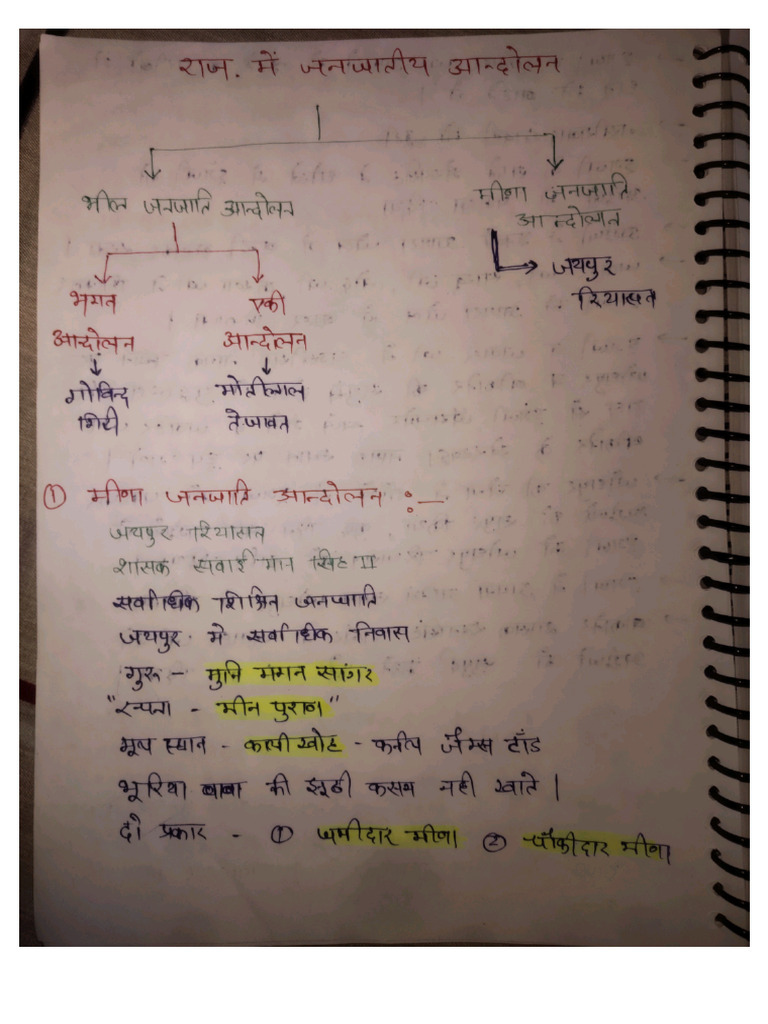 राज. में जनजातीय आन्दोलन
भील जनजाति आन्दोलन
मीणा जनजाति
आन्दोलन
जयपुर
रियासत
भगत
आन्दोलन
गोविन्द
गिरी
एकी
आन्दोलन
मोतीलाल
तेजावत
① मीणा जनजाति आन्दोलन :—
जयपुर रियासत
शासक सवाई मान सिंह II
सर्वाधिक शिक्षित जनजाति
जयपुर मे सर्वाधिक निवास
गुरू - मुनि मगन सागर
"रचना - मीन पुराण"
मूल स्थान - कालीखोह - कर्नल जैम्स टॉड
भूरिया बाबा की झूठी कसम नही खाते |
दो प्रकार - ① जमीदार मीणा ② चौकीदार मीणा